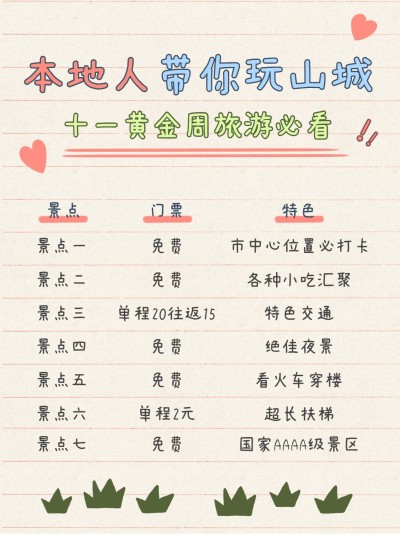 本地人带你玩山城
十一黄金周旅游必看!!
景点 门票 特色
景点一 免费 市中心位置必打卡
景点二 免费 各种小吃汇聚
景点三 单程20往返15 特色交通
景点四 免费 绝佳夜景
景点五 免费 看火车穿楼
景点六 单程2元 超长扶梯
景点七 免费 国家AAAA级景区